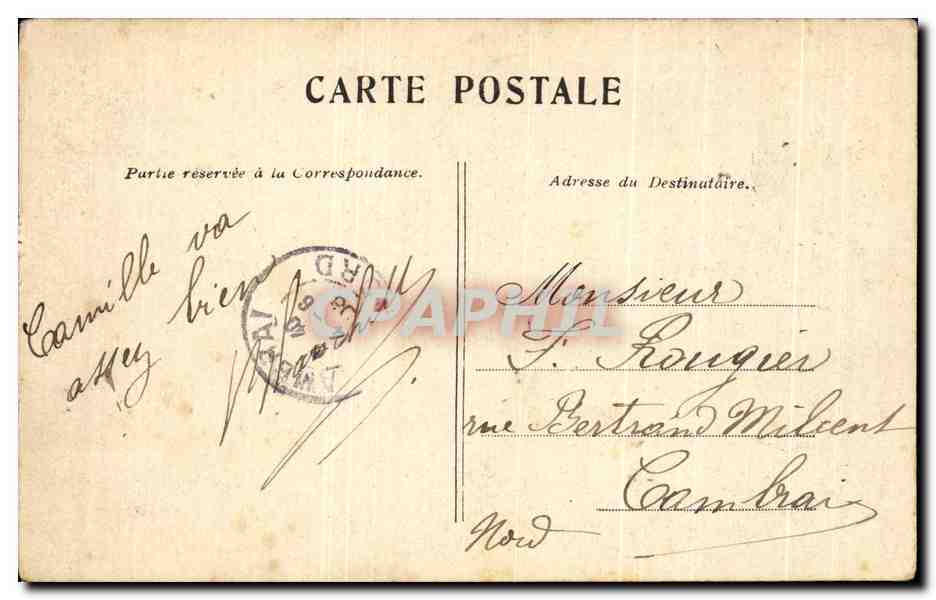 CARTE POSTALE
Partie réservée à la Correspondance.
Adresse du Destinataire.
Camille va
assez bien
CPAPHIL
Monsieur
F. Rougier
rue Bertrand Milcent
Cambrai
Nord